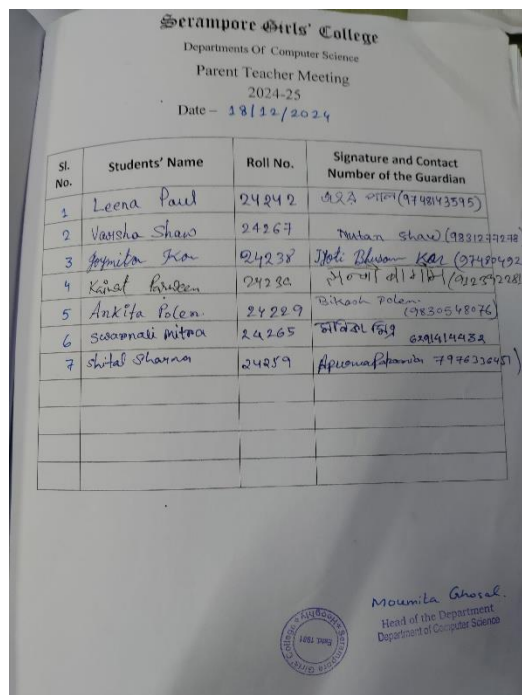 Serampore Girls' College
Departments Of Computer Science
Parent Teacher Meeting
2024-25
Date – 18/12/2024
Sl. No. Students' Name Roll No. Signature and Contact Number of the Guardian
1 Leena Paul 24242 পাল (9748143595)
2 Varsha Shaw 24267 Nutan Shaw (9831277278
3 Joymita Kar 24238 Jyoti Bhusan Kar
4 Kainat Parveen
5 Ankita Polen. 24229 Bikash Polen. (9830548076)
6 Swarnali Mitra 24265 মিত্র 6291414432
7 Shital Sharma 24259 7976336451)
Moumita Ghosal.
Head of the Department
Department of Computer Science
Serampore Girls' College Hooghly
Estd. 1981